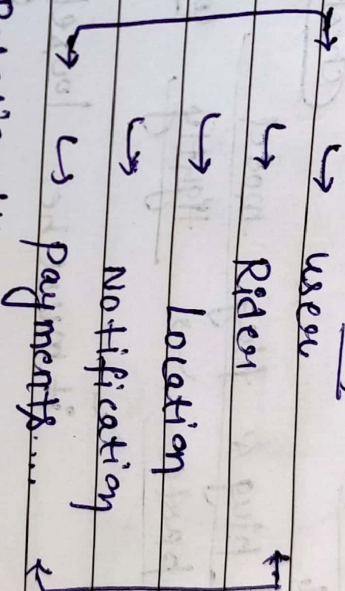 ↳ User
↳ Rider
↳ Location
↳ Notification
↳ Payments....